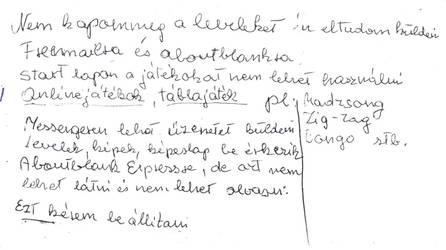 Nem kapom meg a leveleket én eltudom küldeni
Freemailra és aboutblankra
Start lapon a játékokat nem lehet használni
Online játékok, táblajáték pl: Madzsong
Zig-Zag
Congo stb.
Messengeren lehet üzenetet küldeni
levelek, képek, képeslap be érkezik
Aboutblank Expressre, de azt nem
lehet látni és nem lehet olvasni.
Ezt kérem beállítani